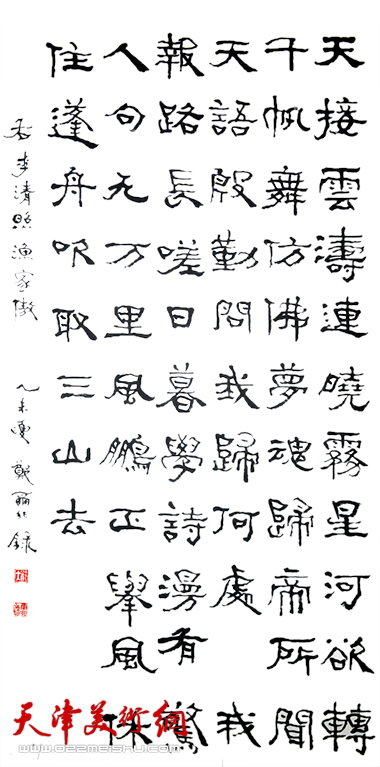 天接雲濤連曉霧星河欲轉
千帆舞仿佛夢魂歸帝所聞
天語殷勤問我歸何處我
報路長嗟日暮學詩漫有驚
人句无万里風鵬正舉風休
住蓬舟吹取三山去
李清照漁家傲
乙未夏 録
天津美術網
www.022meishu.com